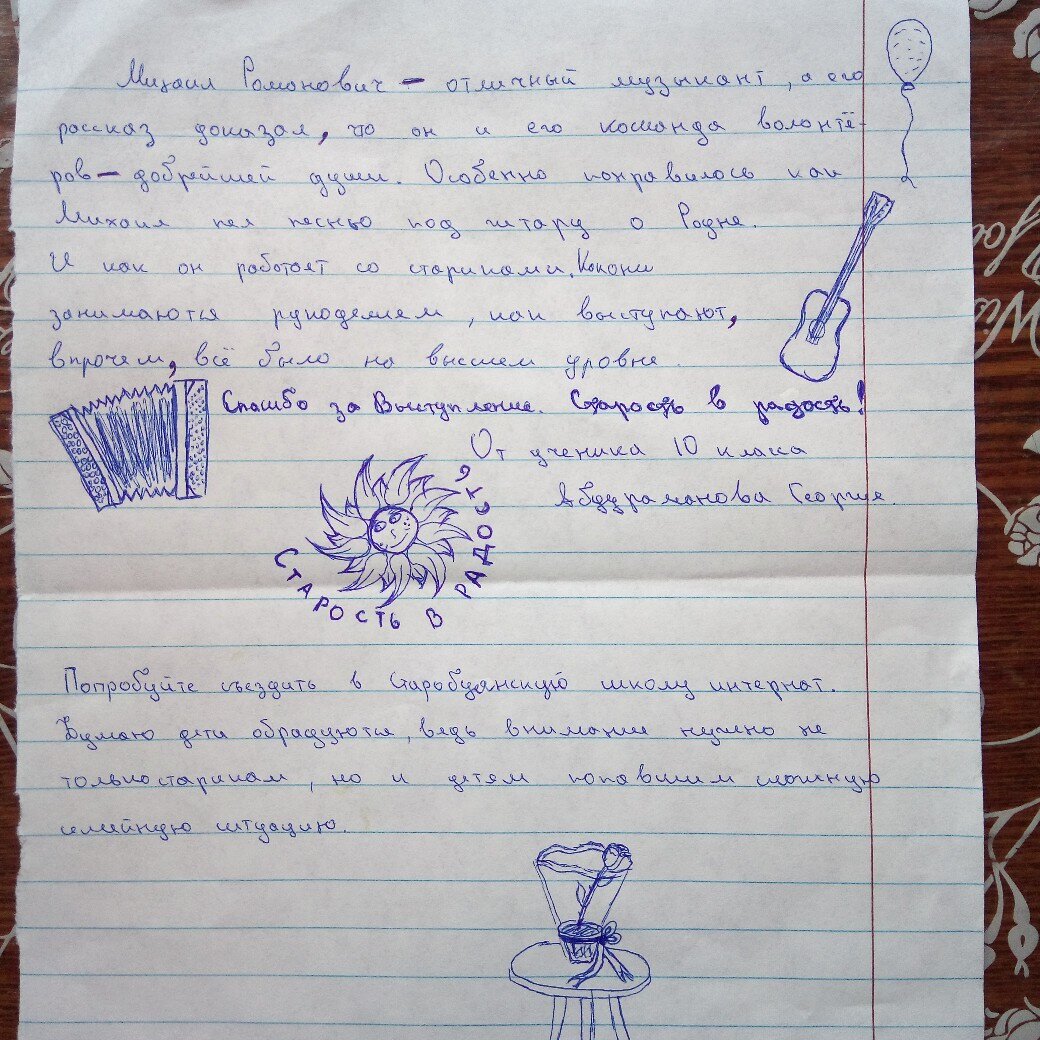 Михаил Романович - отличный музыкант, а его
рассказ доказал, что он и его команда волонтё-
ров - добрейшей души. Особенно понравилось как
Михаил пел песнью под гитару о Родне.
И как он работает со стариками. Как они
занимаются рукоделием, как выступают,
впрочем, всё было на высшем уровне.
Спасибо за Выступление. Старость в радость!
От ученика 10 класа
Абдураманова Георгия.
Старость в радость
Попробуйте съездить в Старобуянскую школу интернат.
Думаю дети обрадуются, ведь внимание нужно не
только старикам, но и детям попавшим сложную
семейную ситуацию.